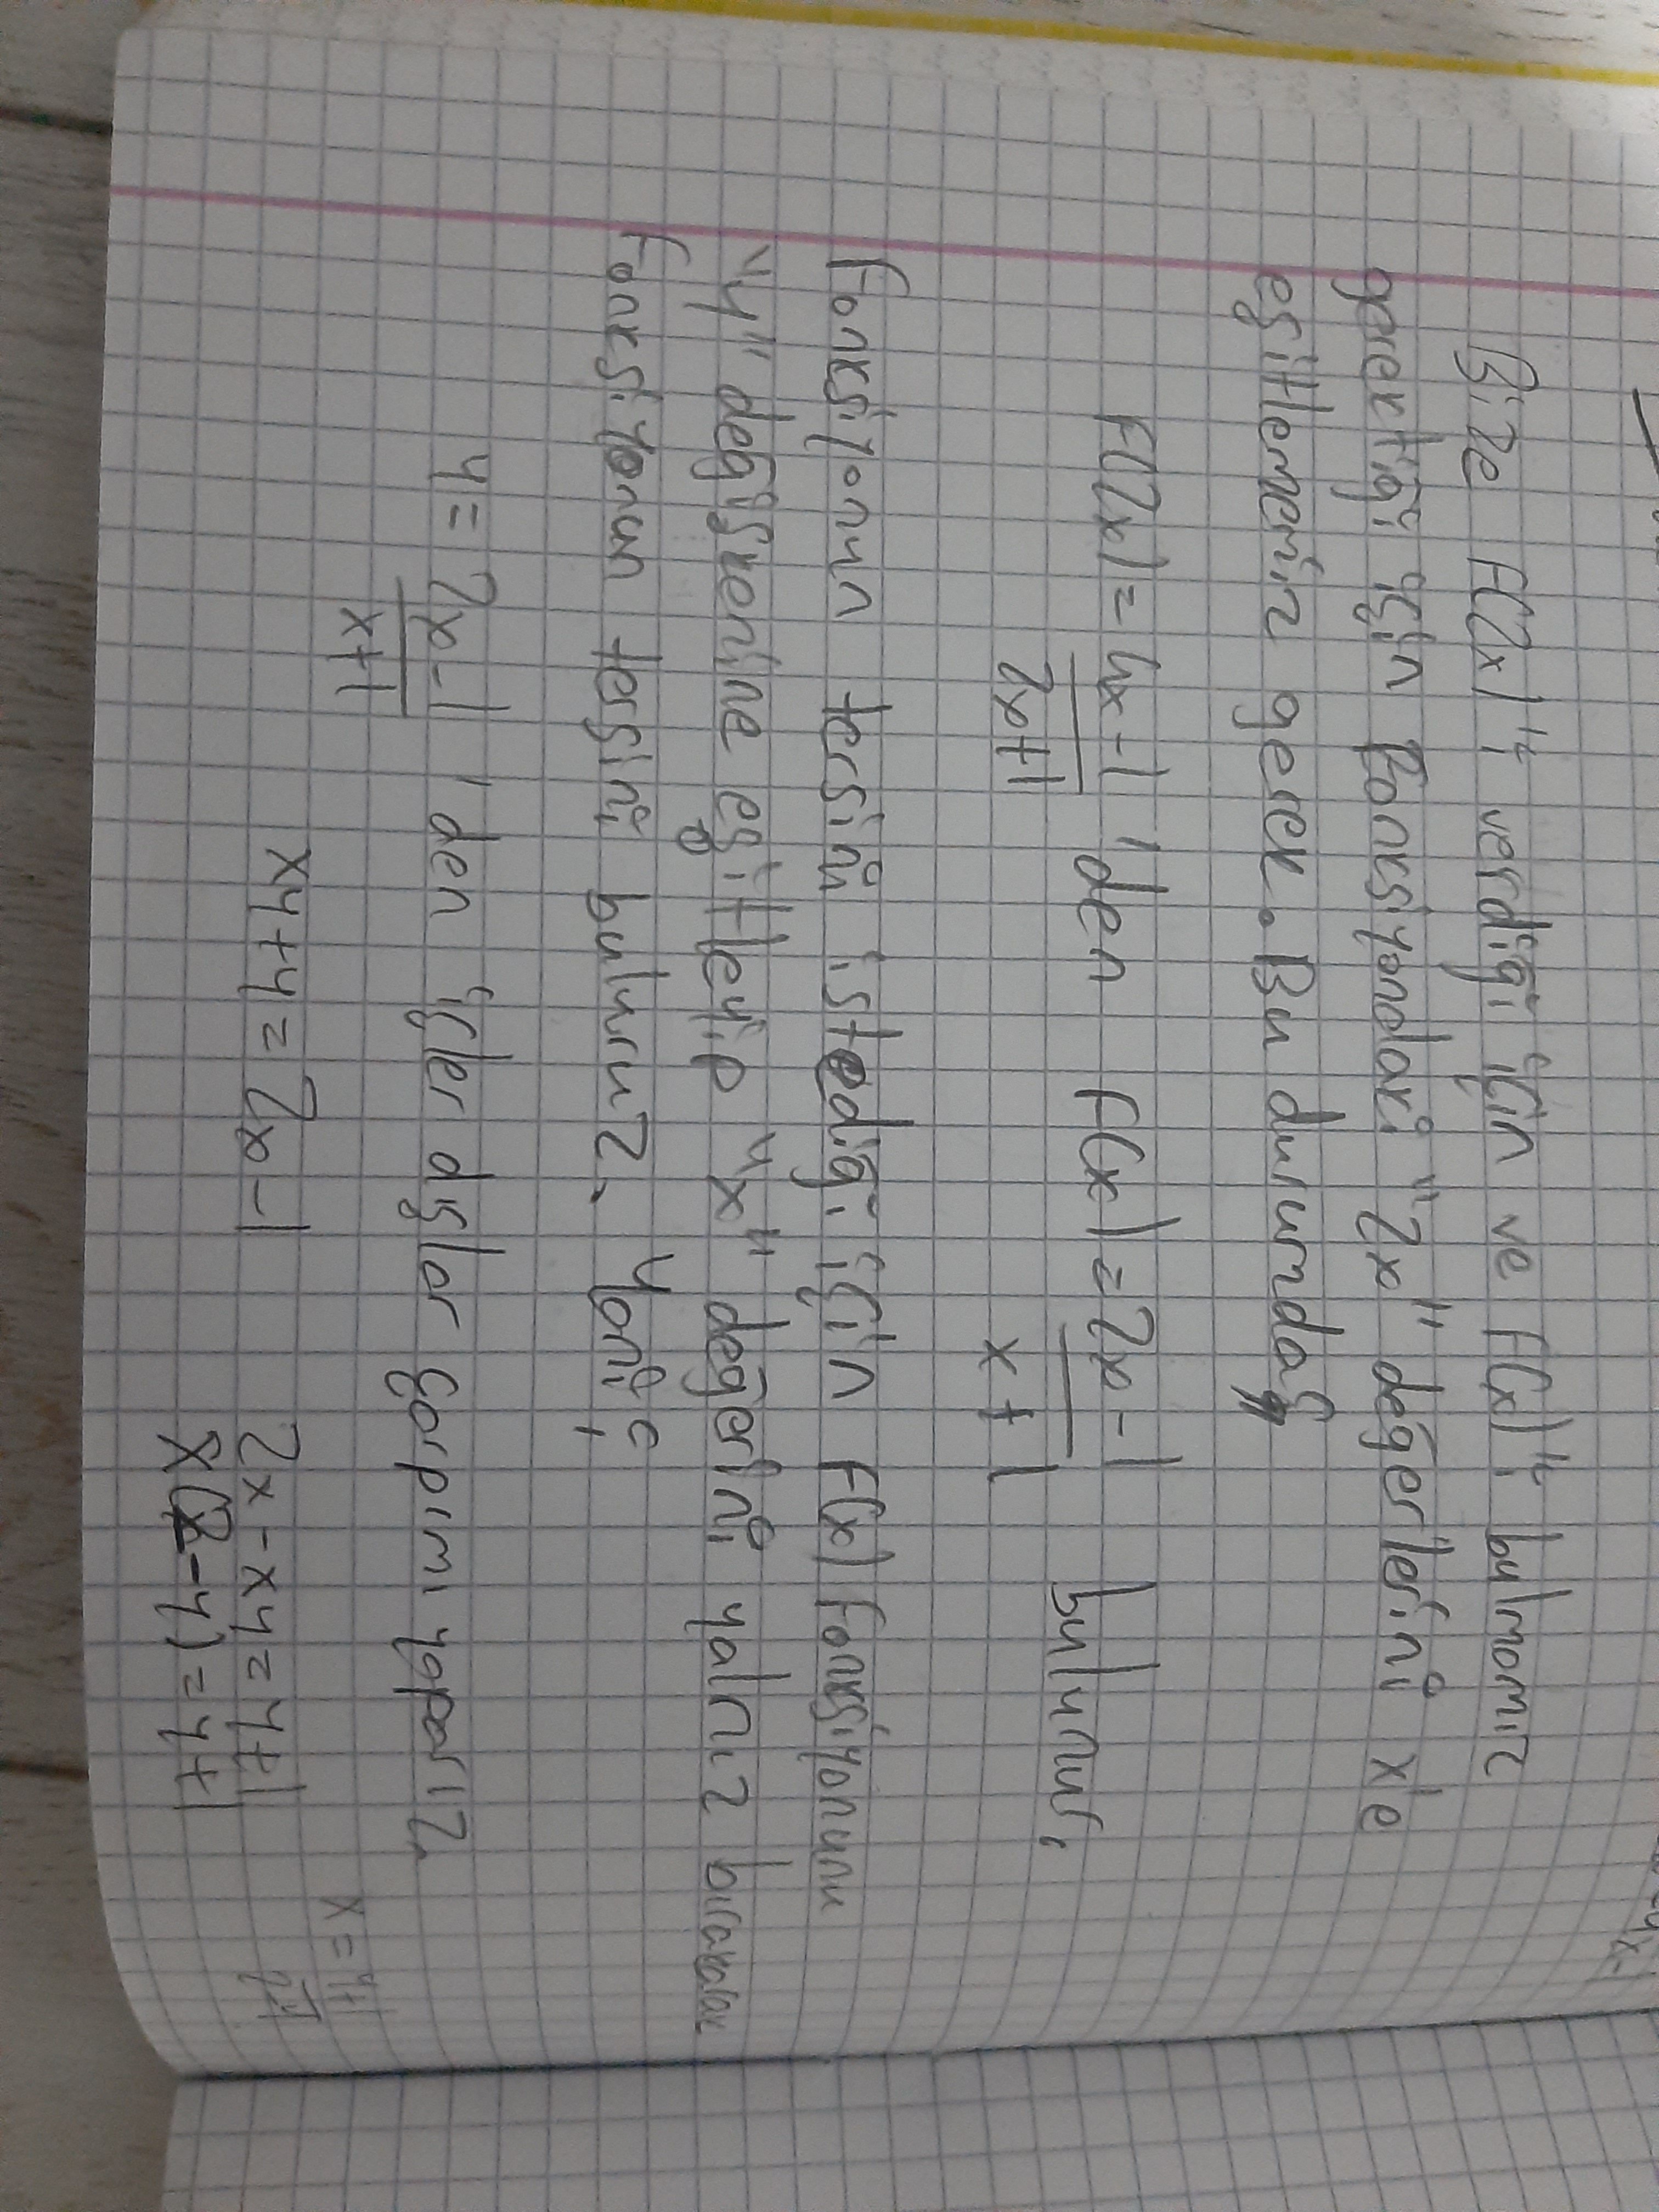 Bize F(2x)'i verdiği için ve F(x)'i bulmamız
gerektiği için Fonksiyondaki "2x" değerlerini x'e
eşitlememiz gerek. Bu durumda;
F(2x) = 4x-1 / 2x+1 'den F(x) = 2x-1 / x+1 bulunur,
Fonksiyonun tersini istediği için F(x) Fonksiyonunu
"y" değişkenine eşitleyip "x" değerini yalnız bırakarak
Fonksiyonun tersini buluruz. Yani;
y = 2x-1 / x+1 'den içler dışlar çarpımı yaparız.
xy+y = 2x-1
2x-xy = y+1
x(2-y) = y+1
x = y+1